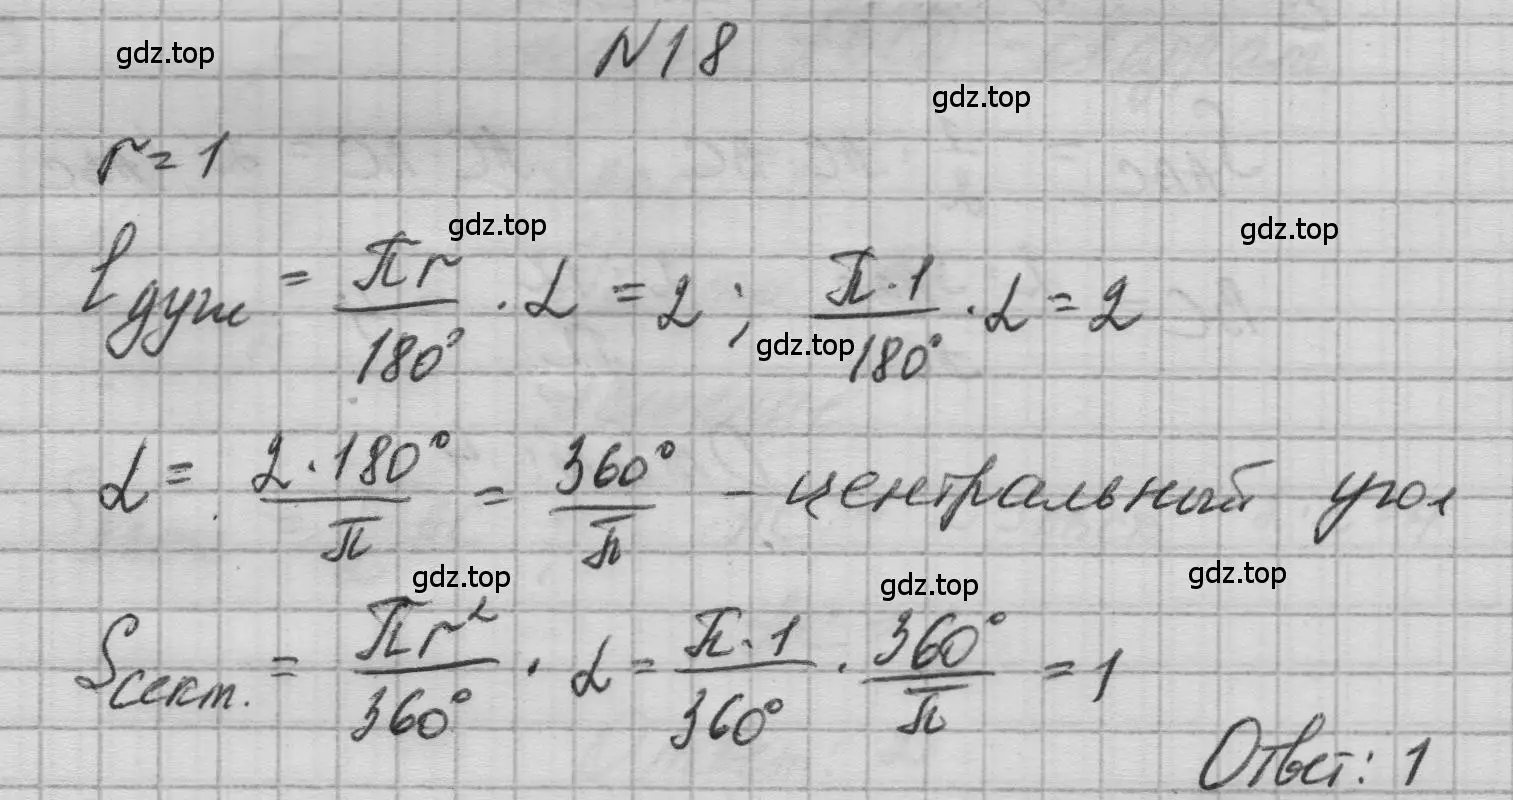 gdz.top
N18
gdz.top
r = 1
gdz.top
gdz.top
l дуги = πr/180° · α = 2 ; π·1/180° · α = 2
gdz.top
α = 2·180°/π = 360°/π – центральный угол
gdz.top
gdz.top
gdz.top
S сект. = πr²/360° · α = π·1/360° · 360°/π = 1
Ответ: 1